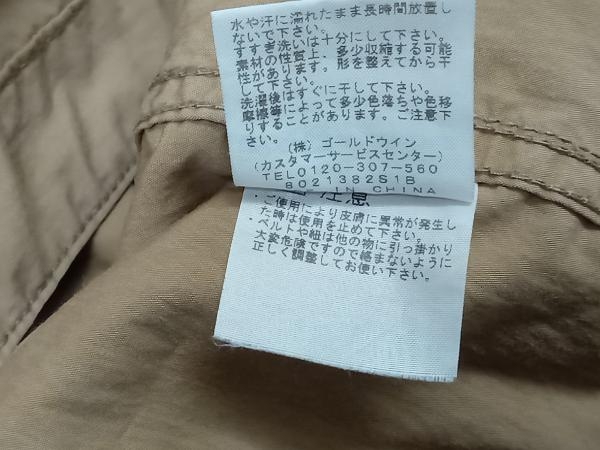 水や汗に濡れたまま長時間放置し
ないで下さい。
すすぎ洗いは十分にして下さい。
素材の性質上、多少収縮する可能
性があります。形を整えてから干
して下さい。
洗濯後はすぐに干して下さい。
摩擦等によって多少色落ちや色移
りすることがあります。ご注意下
さい。
(株) ゴールドウイン
(カスタマーサービスセンター)
TEL0120-307-560
8021382S1B
IN CHINA
注意
・ご使用により皮膚に異常が発生し
た時は使用を止めて下さい。
・ベルトや紐は他の物に引っ掛かり
大変危険ですので絡まないように
正しく調整してお使い下さい。